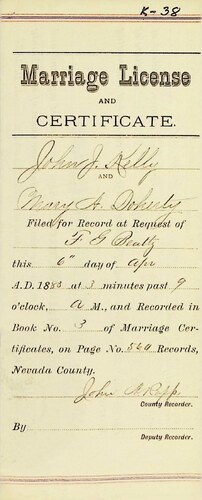 K-38
Marriage License
AND
CERTIFICATE.
John J. Kelly
AND
Mary A. Doherty
Filed for Record at Request of
F G Beatty
this 6" day of Apr
A.D. 1885 at 3 minutes past 9
o'clock, A M., and Recorded in
Book No. 3 of Marriage Cer-
tificates, on Page No. 560 Records,
Nevada County.
John A Rapp
County Recorder.
By
Deputy Recorder.